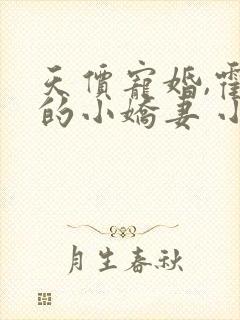 天價寵婚,霍
的小嬌妻 小
月生春秋